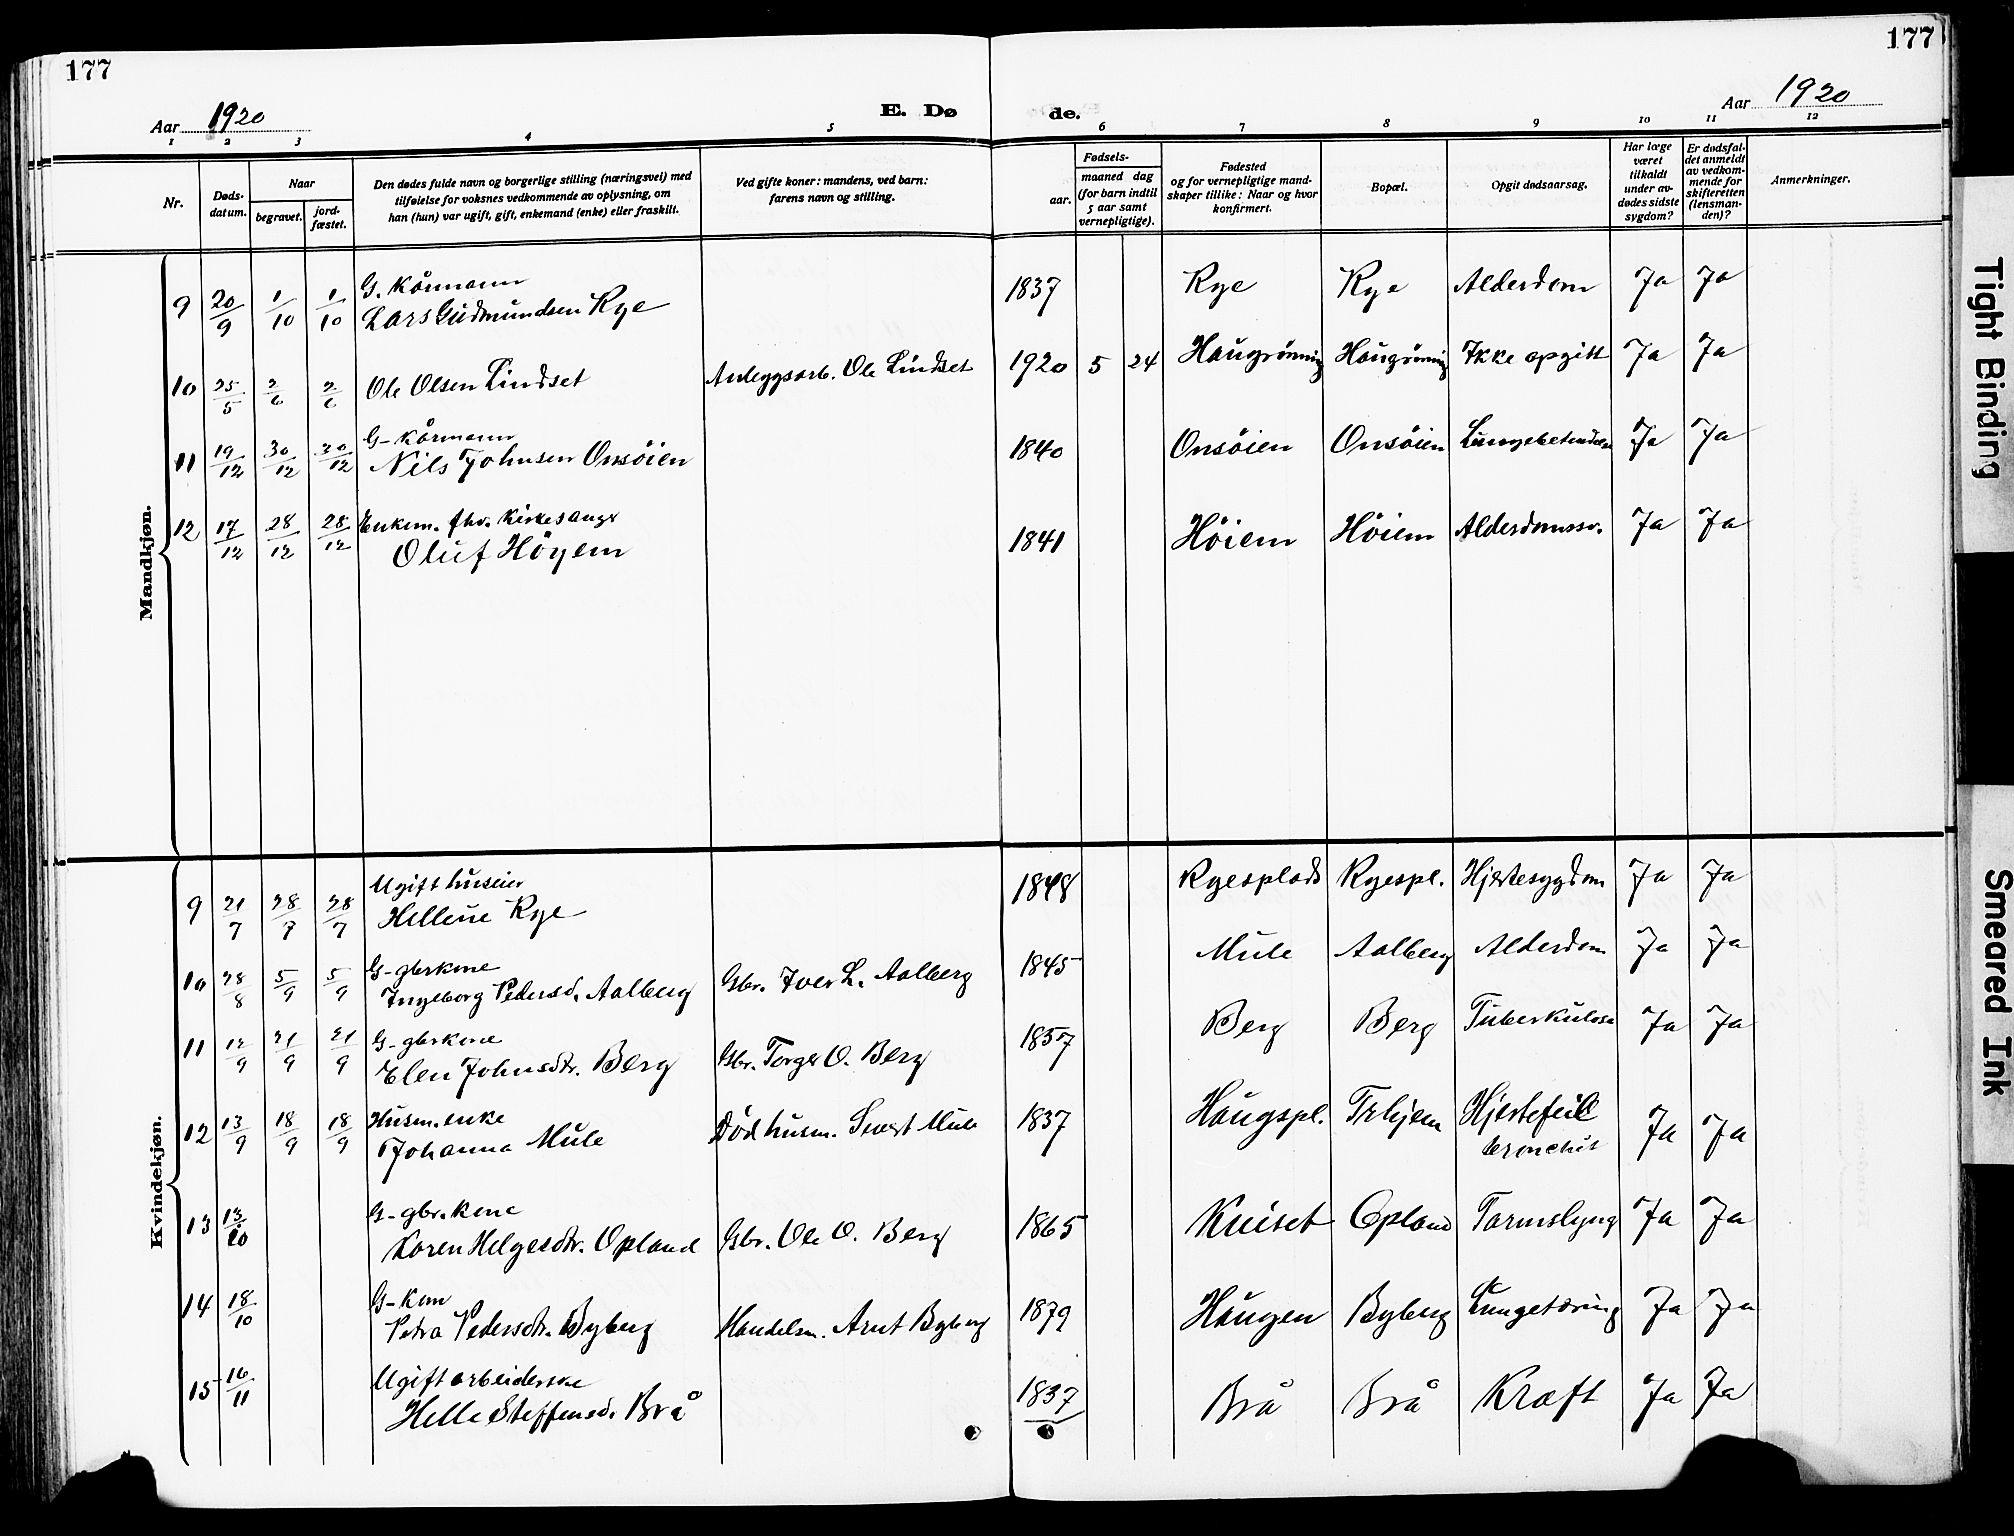 177
177
Aar 1920
E. Dø
de.
Aar 1920
1 2 3 4 5 6 7 8 9 10 11 12
Nr.
Døds-
datum.
Naar
begravet.
jord-
fæstet.
Den dødes fulde navn og borgerlige stilling (næringsvei) med
tilføielse for voksnes vedkommende av oplysning, om
han (hun) var ugift, gift, enkemand (enke) eller fraskilt.
Ved gifte koner: mandens, ved barn:
farens navn og stilling.
Fødsels-
aar.
maaned dag
(for barn indtil
5 aar samt
vernepligtige).
Fødested
og for vernepligtige mand-
skaper tillike: Naar og hvor
konfirmert.
Bopæl.
Opgit dødsaarsag.
Har læge
været
tilkaldt
under av-
dødes sidste
sygdom?
Er dødsfal-
det anmeldt
av vedkom-
mende for
skifteretten
(lensman-
den)?
Anmerkninger.
Mandkjøn.
G. Kårmann
9 20/9 1/10 1/10 Lars Gudmundsen Rye 1837 Rye Rye Alderdom Ja Ja
10 25/5 2/6 2/6 Ole Olsen Lindset Anleggsarb. Ole Lindset 1920 5 24 Haugrönning Haugrönning Ikke opgitt Ja Ja
G- Kårmann
11 19/12 30/12 30/12 Nils Johnsen Onsöien 1840 Onsöien Onsöien Lungebetendelse Ja Ja
Enkem. fhv. Kirkesanger
12 17/12 28/12 28/12 Oluf Höyem 1841 Höiem Höiem Alderdomssv. Ja Ja
Kvindekjøn.
Ugift huseier
9 21/7 28/7 28/7 Hellene Rye 1848 Ryesplads Ryespl. Hjertesygdom Ja Ja
G- gbrkone
10 28/8 5/9 5/9 Ingeborg Pedersd. Aalberg Gbr. Iver L. Aalberg 1845 Mule Aalberg Alderdom Ja Ja
G- gbrkone
11 12/9 21/9 21/9 Elen Johnsdtr. Berg Gbr. Torger O. Berg 1857 Berg Berg Tuberkulose Ja Ja
Husm. enke
12 13/9 18/9 18/9 Johanna Mule Död husm. Sivert Mule 1837 Haugspl. Trhjem Hjertefeil
bronchit Ja Ja
G- gbr. Kone
13 13/10 Karen Helgesdtr. Opland Gbr. Ole O. Berg 1865 Kuiset Opland Tarmslyng Ja Ja
G- Kone
14 18/10 Petra Pedersdtr. Byberg Handelsm. Arnt Byberg 1879 Haugen Byberg Lungetæring Ja Ja
Ugift arbeiderske
15 16/11 Helle Steffensd. Brå 1837 Brå Brå Kræft Ja Ja
Tight Binding
Smeared Ink